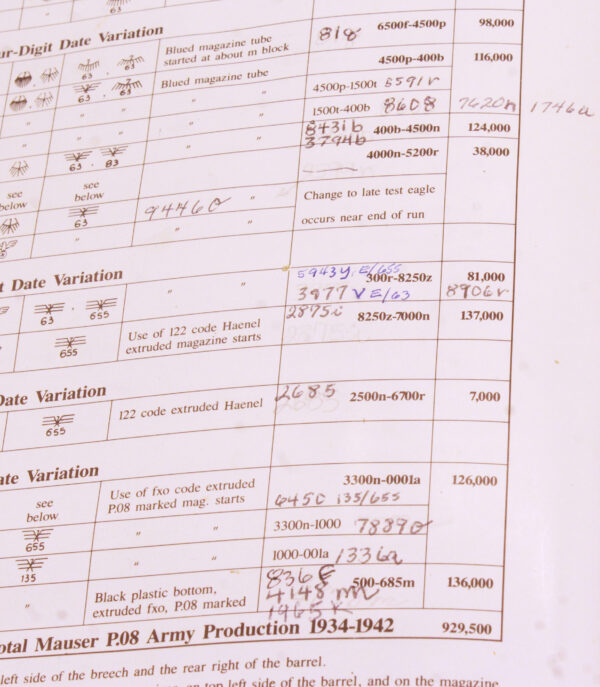 ur-Digit Date Variation
818 6500f-4500p 98,000
63
Blued magazine tube
started at about m block
63 . 63
4500p-400b 116,000
Blued magazine tube
63 . 63
4500p-1500t 5591r
" " "
1500t-400b 8608 7620n 1746a
" " "
8431b 400b-4500n 124,000
3794b
63 . 83
4000n-5200r 38,000
see
below
see
below
94460 "
Change to late test eagle
occurs near end of run
63
t Date Variation
5943y E/655
300r-8250z 81,000
63 . 655
" "
3977 v E/63 8906r
655
Use of 122 code Haenel
extruded magazine starts
2875i 8250z-7000n 137,000
Date Variation
655
122 code extruded Haenel
2685 2500n-6700r 7,000
ate Variation
see
below
Use of fxo code extruded
P.08 marked mag. starts
3300n-0001a 126,000
645C 135/655
655
" "
3300n-1000 7889
135
" "
1000-001a 1336a
"
Black plastic bottom,
extruded fxo, P.08 marked
836 500-685m 136,000
4148 m
1965 K
otal Mauser P.08 Army Production 1934-1942 929,500
left side of the breech and the rear right of the barrel.
on top left side of the barrel, and on the magazine